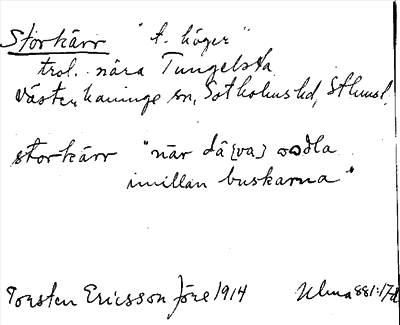 Storkärr "t. höger"
trol. nära Tungelsta
Västerhaninge sn, Sotholms hd, Sthmsl.
storkärr "när då [va] oodla
imillan buskarna"
Torsten Ericsson före 1914 Ulma 881:17d